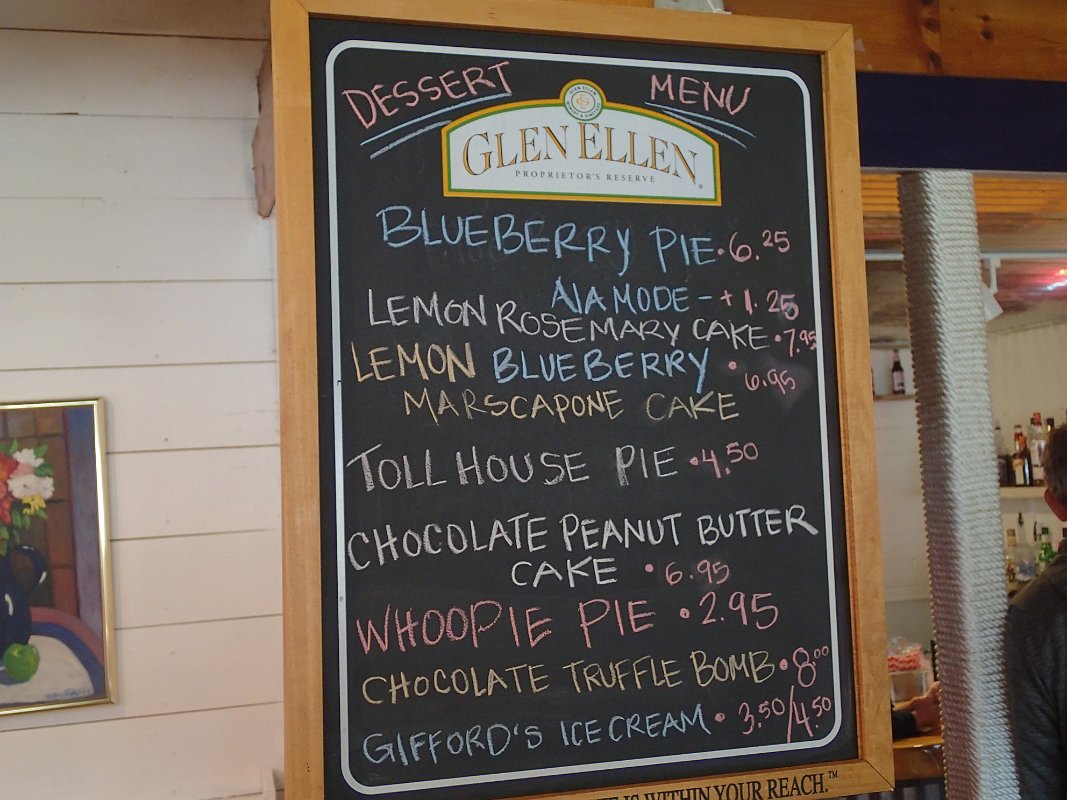 DESSERT MENU
GLEN ELLEN
PROPRIETOR'S RESERVE
BLUEBERRY PIE • 6.25
A LA MODE - + 1.25
LEMON ROSEMARY CAKE • 7.95
LEMON BLUEBERRY • 6.95
MARSCAPONE CAKE
TOLL HOUSE PIE • 4.50
CHOCOLATE PEANUT BUTTER
CAKE • 6.95
WHOOPIE PIE • 2.95
CHOCOLATE TRUFFLE BOMB • 8.00
GIFFORD'S ICE CREAM • 3.50/4.50
IS WITHIN YOUR REACH.™